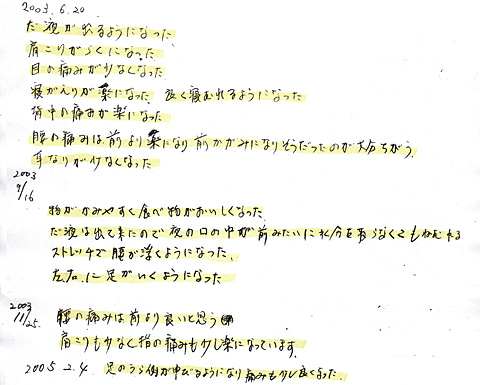 2003.6.20
だ液が出るようになった
肩こりがらくになった
目の痛みが少なくなった
寝がえりが楽になった 良く寝むれるようになった
背中の痛みが楽になった
腰の痛みは前より楽になり前かがみになりそうだったのが大分ちがう.
耳なりがけなくなった
2003 9/16
物がかみやすく食べ物がおいしくなった
だ液は出て来たので夜の口の中が前みたいに水分を取らなくてもねむれる
ストレッチで腰が浮くようになった.
左右.に足がいくようになった
2003 11/25.
腰の痛みは前より良いと思う
肩こりも少なく指の痛みも少し楽になっています.
2005 2.4 足のうら側が中びるようになり痛みも少し良くなった.